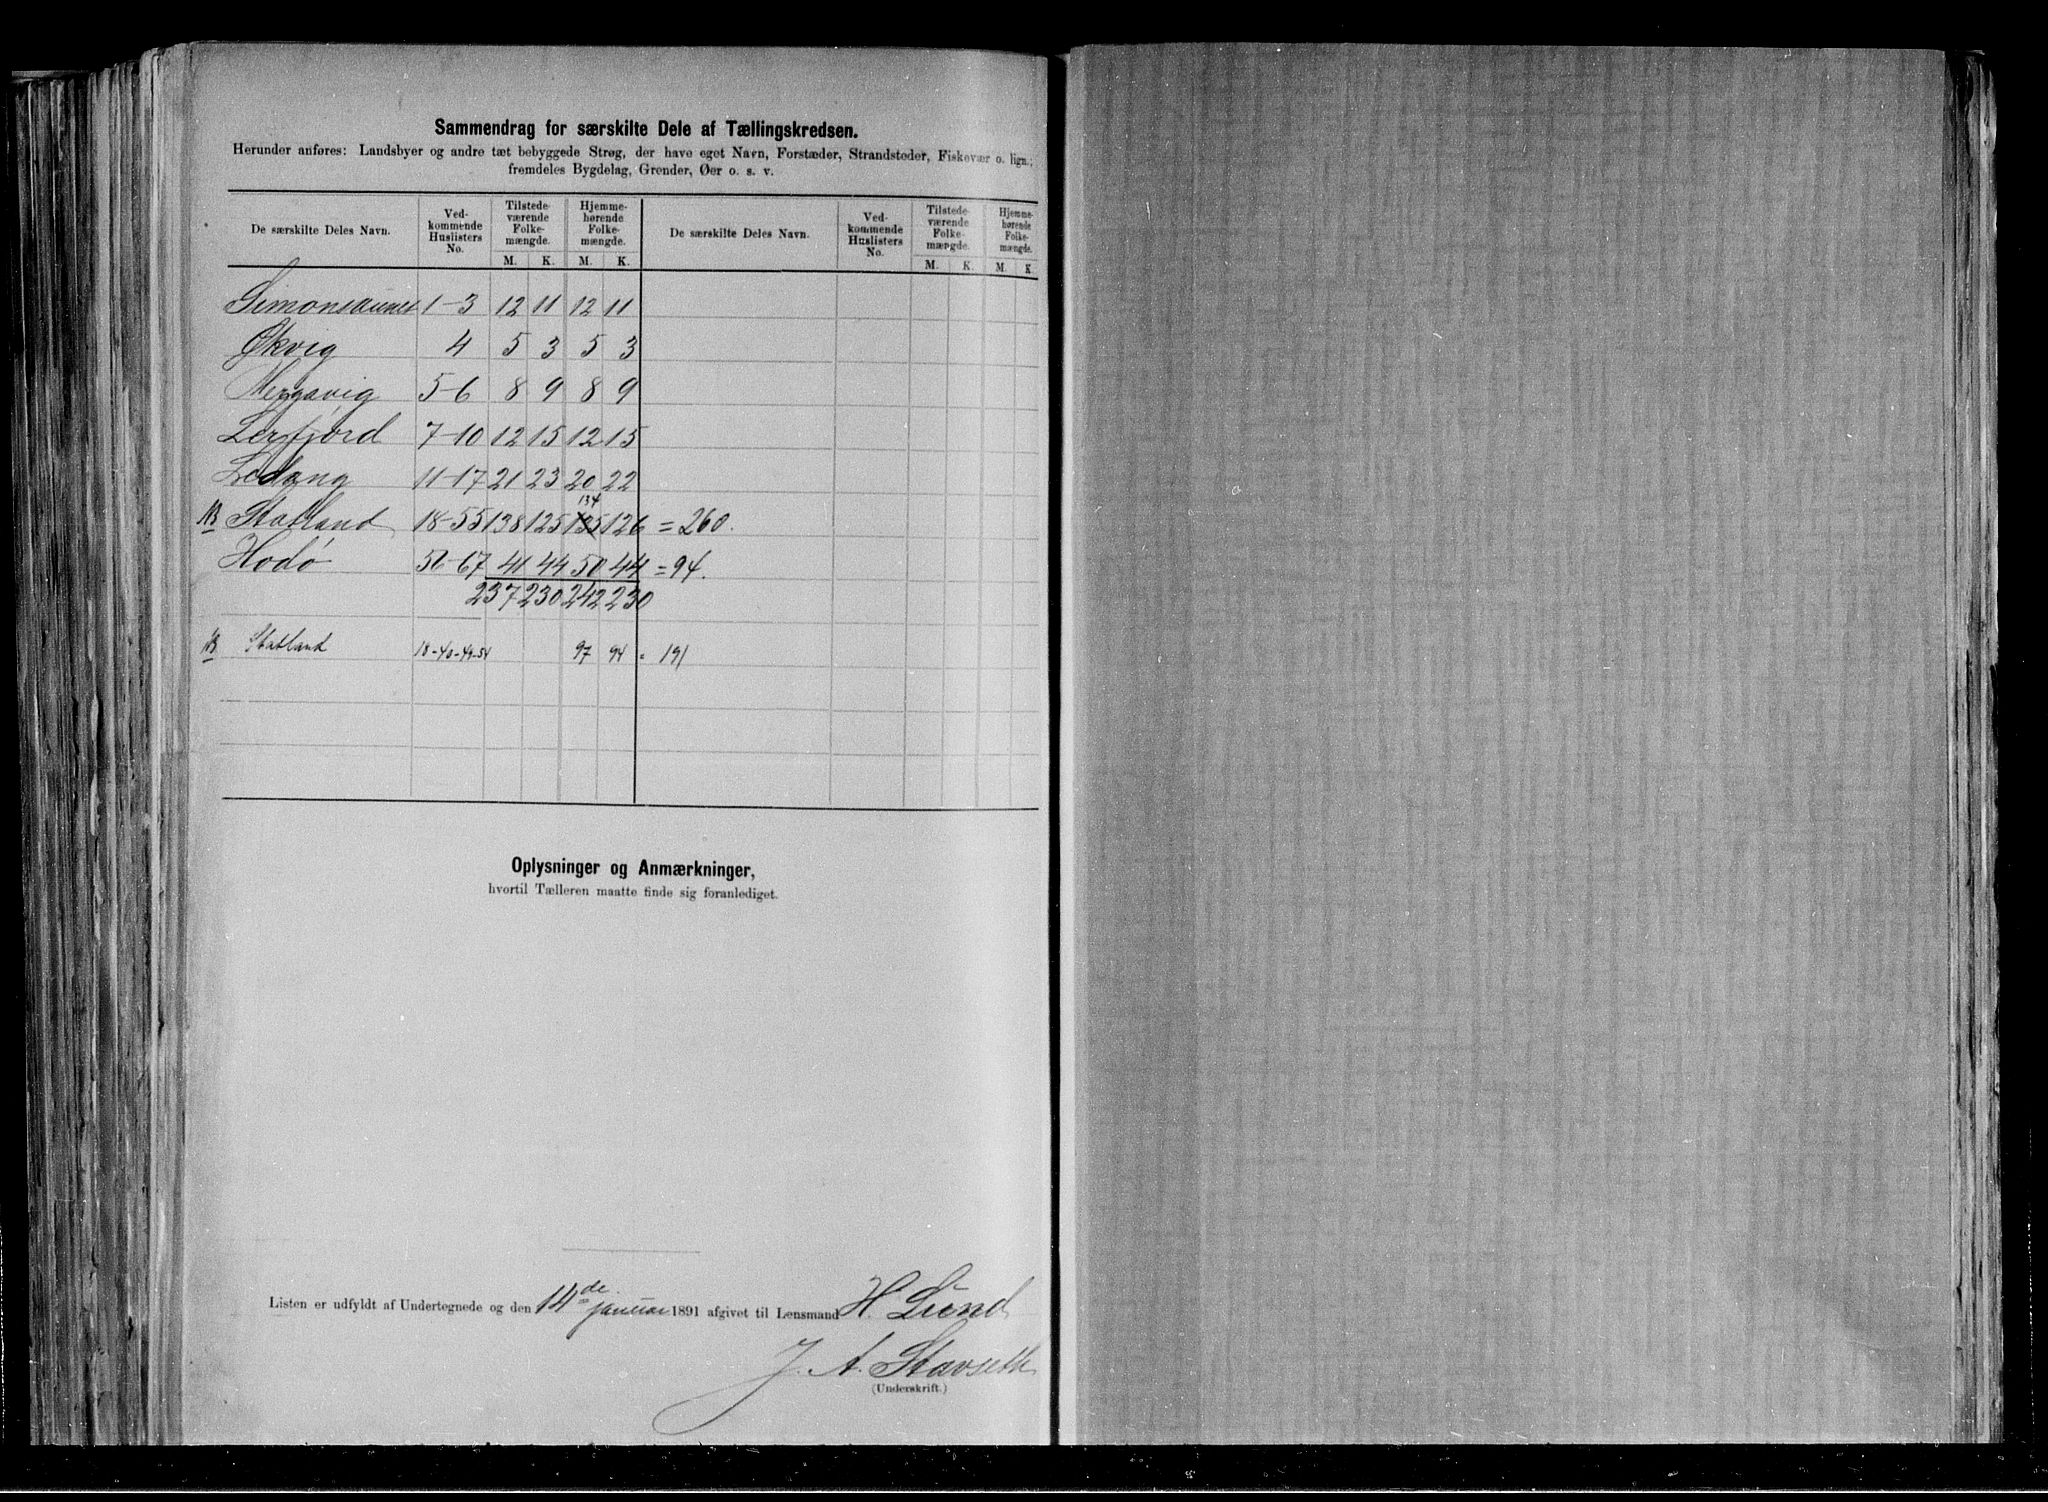 Sammendrag for særskilte Dele af Tællingskredsen.
Herunder anføres: Landsbyer og andre tæt bebyggede Strøg, der have eget Navn, Forstæder, Strandsteder, Fiskevær o. lign.;
fremdeles Bygdelag, Grender, Øer o. s. v.
De særskilte Deles Navn. Ved-kommende Huslisters No. Tilstede-værende Folke-mængde. Hjemme-hørende Folke-mængde. De særskilte Deles Navn. Ved-kommende Huslisters No. Tilstede-værende Folke-mængde. Hjemme-hørende Folke-mængde.
M. K. M. K. M. K. M. K.
1-3 12 11 12 11
Økvig 4 5 3 5 3
5-6 8 9 8 9
Lerfjord 7-10 12 15 12 15
11-17 21 23 20 22
134
NB Statland 18-55 138 125 135 126 = 260.
Hodø 56-67 41 44 50 44 = 94.
237 230 242 230
NB Statland 18-40-49-54 97 94 = 191
Oplysninger og Anmærkninger,
hvortil Tælleren maatte finde sig foranlediget.
Listen er udfyldt af Undertegnede og den 14de januar 1891 afgivet til Lensmand H. Lund
J. A. Stavseth
(Underskrift.)